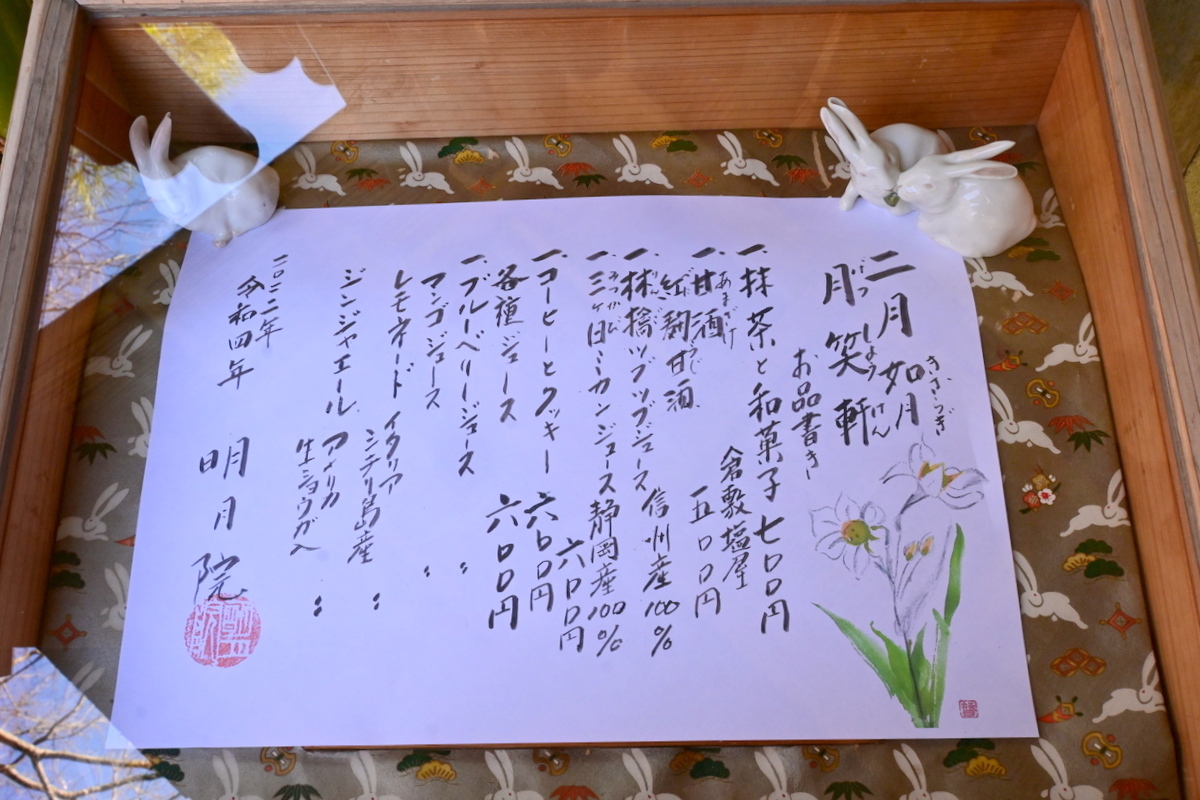 二月 如月 きさらぎ
月笑軒 げっしょうけん
お品書き
一、抹茶と和菓子 七〇〇円
一、甘酒 あまざけ 倉敷塩屋
紅麹甘酒 五〇〇円
一、林檎ツブツブジュース 信州産100%
一、三ヶ日ミカンジュース 静岡産100%
六〇〇円
一、コーヒーとクッキー 六〇〇円
各種ジュース 六〇〇円
一、ブルーベリージュース 〃
マンゴジュース 〃
レモネード イタリア
シチリ島産 〃
ジンジャエール アメリカ
生ショウガ入 〃
二〇二二年
令和四年 明月院